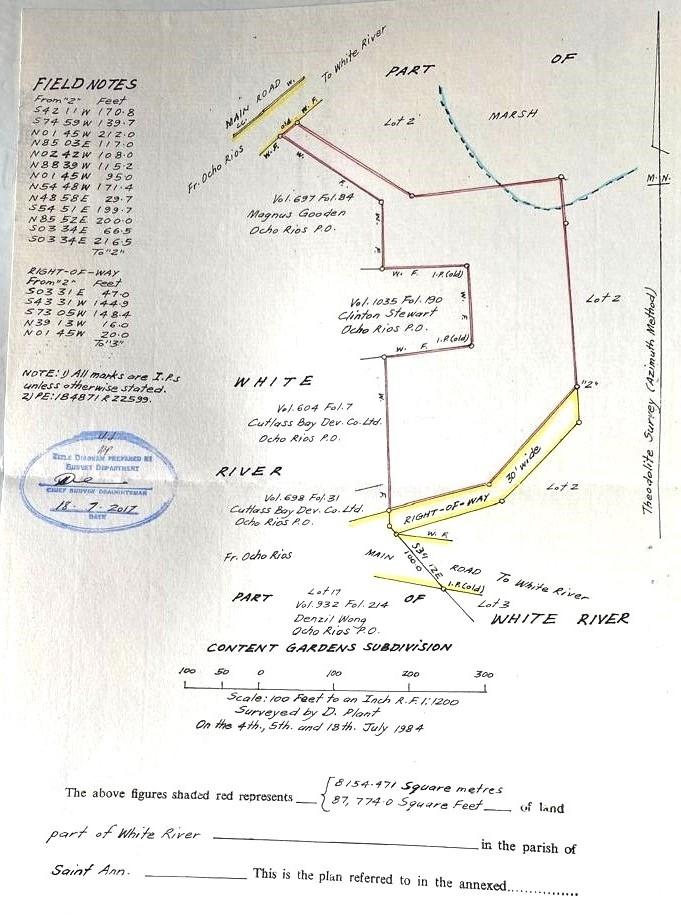 FIELD NOTES
From "2" Feet
S42 11 W 170.8
S74 59W 139.7
N01 45W 212.0
N85 03E 117.0
N02 42W 108.0
N88 39W 115.2
N01 45W 95.0
N54 48W 171.4
N48 58E 29.7
S54 51E 199.7
N85 52E 200.0
S03 34E 66.5
S03 34E 216.5
To "2"
RIGHT-OF-WAY
From "2" Feet
S03 31E 47.0
S43 31W 144.9
S73 05W 148.4
N39 13W 16.0
N01 45W 20.0
To "3"
NOTE: 1) All marks are I.P.s
unless otherwise stated.
2) PE: 184871 R 22599.
TITLE DIAGRAM PREPARED BY
SURVEY DEPARTMENT
CHIEF SURVEY DRAUGHTSMAN
18. 7. 2017
DATE
MAIN ROAD
To White River
Fr. Ocho Rios
W.F.
old
W.F.
PART OF
Lot 2
MARSH
M.N.
Vol. 697 Fol. 84
Magnus Gooden
Ocho Rios P.O.
W. F. I.P.(old)
Vol. 1035 Fol. 190
Clinton Stewart
Ocho Rios P.O.
W. F. I.P.(old)
Lot 2
"2"
WHITE
Vol. 604 Fol. 7
Cutlass Bay Dev. Co. Ltd.
Ocho Rios P.O.
RIVER
Vol. 698 Fol. 31
Cutlass Bay Dev. Co. Ltd.
Ocho Rios P.O.
30' wide
RIGHT-OF-WAY
Lot 2
W.F.
Fr. Ocho Rios
MAIN ROAD To White River
S39 12E
100.0
I.P.(old)
Lot 3
PART OF WHITE RIVER
Lot 17
Vol. 932 Fol. 214
Denzil Wong
Ocho Rios P.O.
Theodolite Survey (Azimuth Method)
CONTENT GARDENS SUBDIVISION
100 50 0 100 200 300
Scale: 100 Feet to an Inch R.F. 1:1200
Surveyed by D. Plant
On the 4th., 5th. and 18th. July 1984
The above figures shaded red represents { 8154.471 Square metres
87,774.0 Square Feet of land
part of White River in the parish of
Saint Ann. This is the plan referred to in the annexed...............